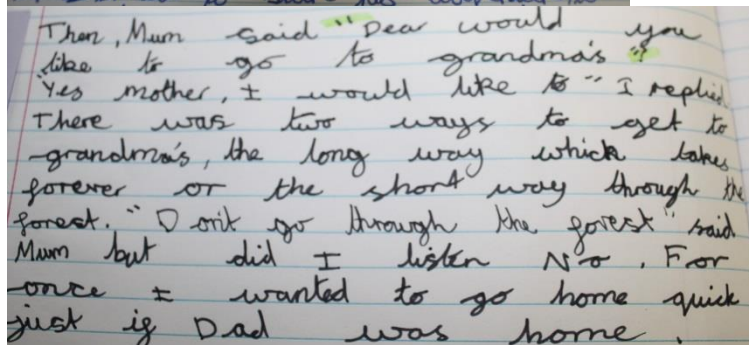 Then, Mum said "Dear would you
like to go to grandma's"?
"Yes mother, I would like to" I replied.
There was two ways to get to
grandma's, the long way which takes
forever or the short way through the
forest. "Don't go through the forest" said
Mum but did I listen No. For
once I wanted to go home quick
just if Dad was home.